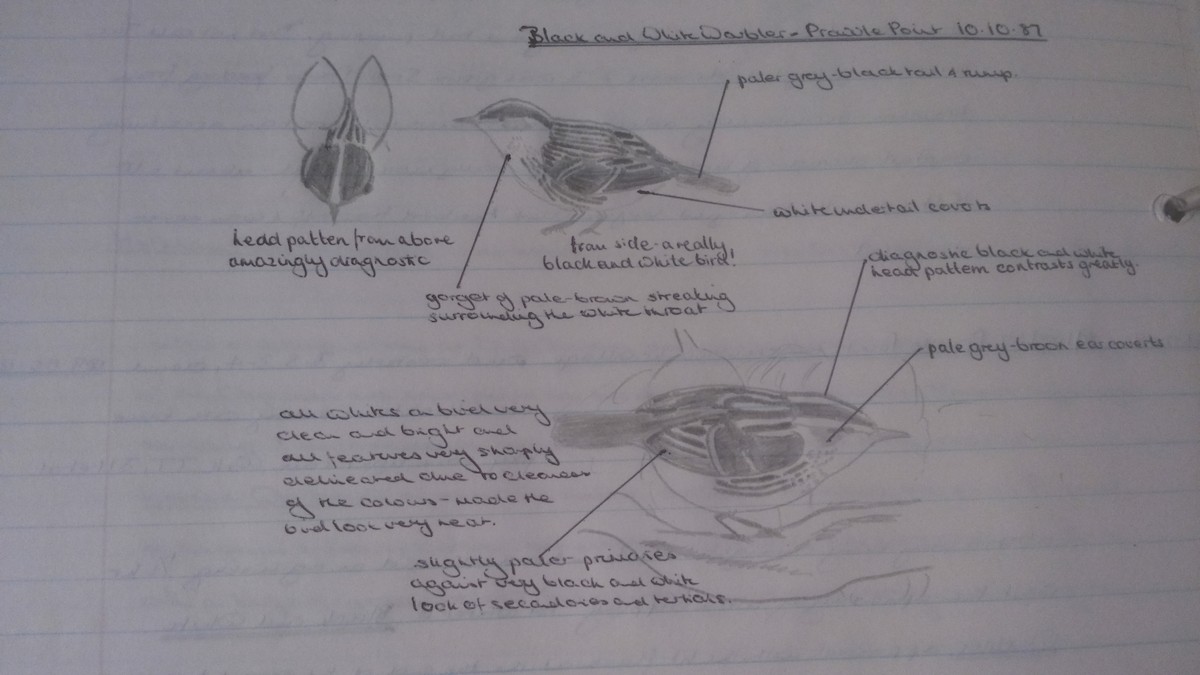 Black and White Warbler - Prawle Point 10.10.87
paler grey-black tail & rump.
white undertail coverts
head patten from above
amazingly diagnostic
from side - a really
black and white bird!
gorget of pale-brown streaking
surrounding the white throat
diagnostic black and white
head pattern contrasts greatly.
pale grey-brown ear coverts
all whites on bird very
clean and bright and
all features very sharply
delineared due to cleaness
of the colours - made the
bird look very neat.
slightly paler primaries
against very black and white
look of secondaries and tertials.